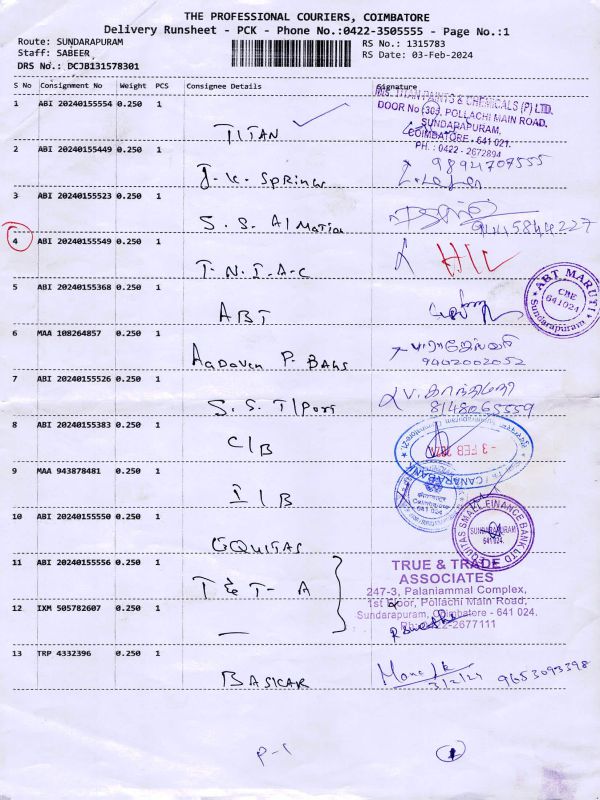 THE PROFESSIONAL COURIERS, COIMBATORE
Delivery Runsheet - PCK - Phone No.:0422-3505555 - Page No.:1
Route: SUNDARAPURAM RS No.: 1315783
Staff: SABEER RS Date: 03-Feb-2024
DRS No.: DCJB131578301
S No Consignment No Weight PCS Consignee Details Signature
1 ABI 20240155554 0.250 1 TITAN
M/S. TITAN PAINTS & CHEMICALS (P) LTD.
DOOR No : 303, POLLACHI MAIN ROAD,
SUNDARAPURAM,
COIMBATORE - 641 021.
PH. : 0422 - 2672894
2 ABI 20240155449 0.250 1 J.K. Springs 9894707555
3 ABI 20240155523 0.250 1 S.S. A/Mation 9445844227
4 ABI 20240155549 0.250 1 T.N.I.A-C
5 ABI 20240155368 0.250 1 ABT
ABT MARUTI
CME
641024
Sundarapuram
6 MAA 108264857 0.250 1 Aadaven P. Bags
9402002052
7 ABI 20240155526 0.250 1 S.S. T/Port
8148265559
8 ABI 20240155383 0.250 1 C/B
- 3 FEB 2024
CANARA BANK
9 MAA 943878481 0.250 1 I/B
Coimbatore
641 024
10 ABI 20240155550 0.250 1 EQUITAS
EQUITAS SMALL FINANCE BANK LTD
SUNDARAPURAM
641 024.
11 ABI 20240155556 0.250 1 T & T- A
TRUE & TRADE
ASSOCIATES
247-3, Palaniammal Complex,
1st Floor, Pollachi Main Road,
Sundarapuram, Coimbatore - 641 024.
Ph: 0422-2677111
12 IXM 505782607 0.250 1 —
13 TRP 4332396 0.250 1 BASKAR
3/2/24 9653093398
P-1 1